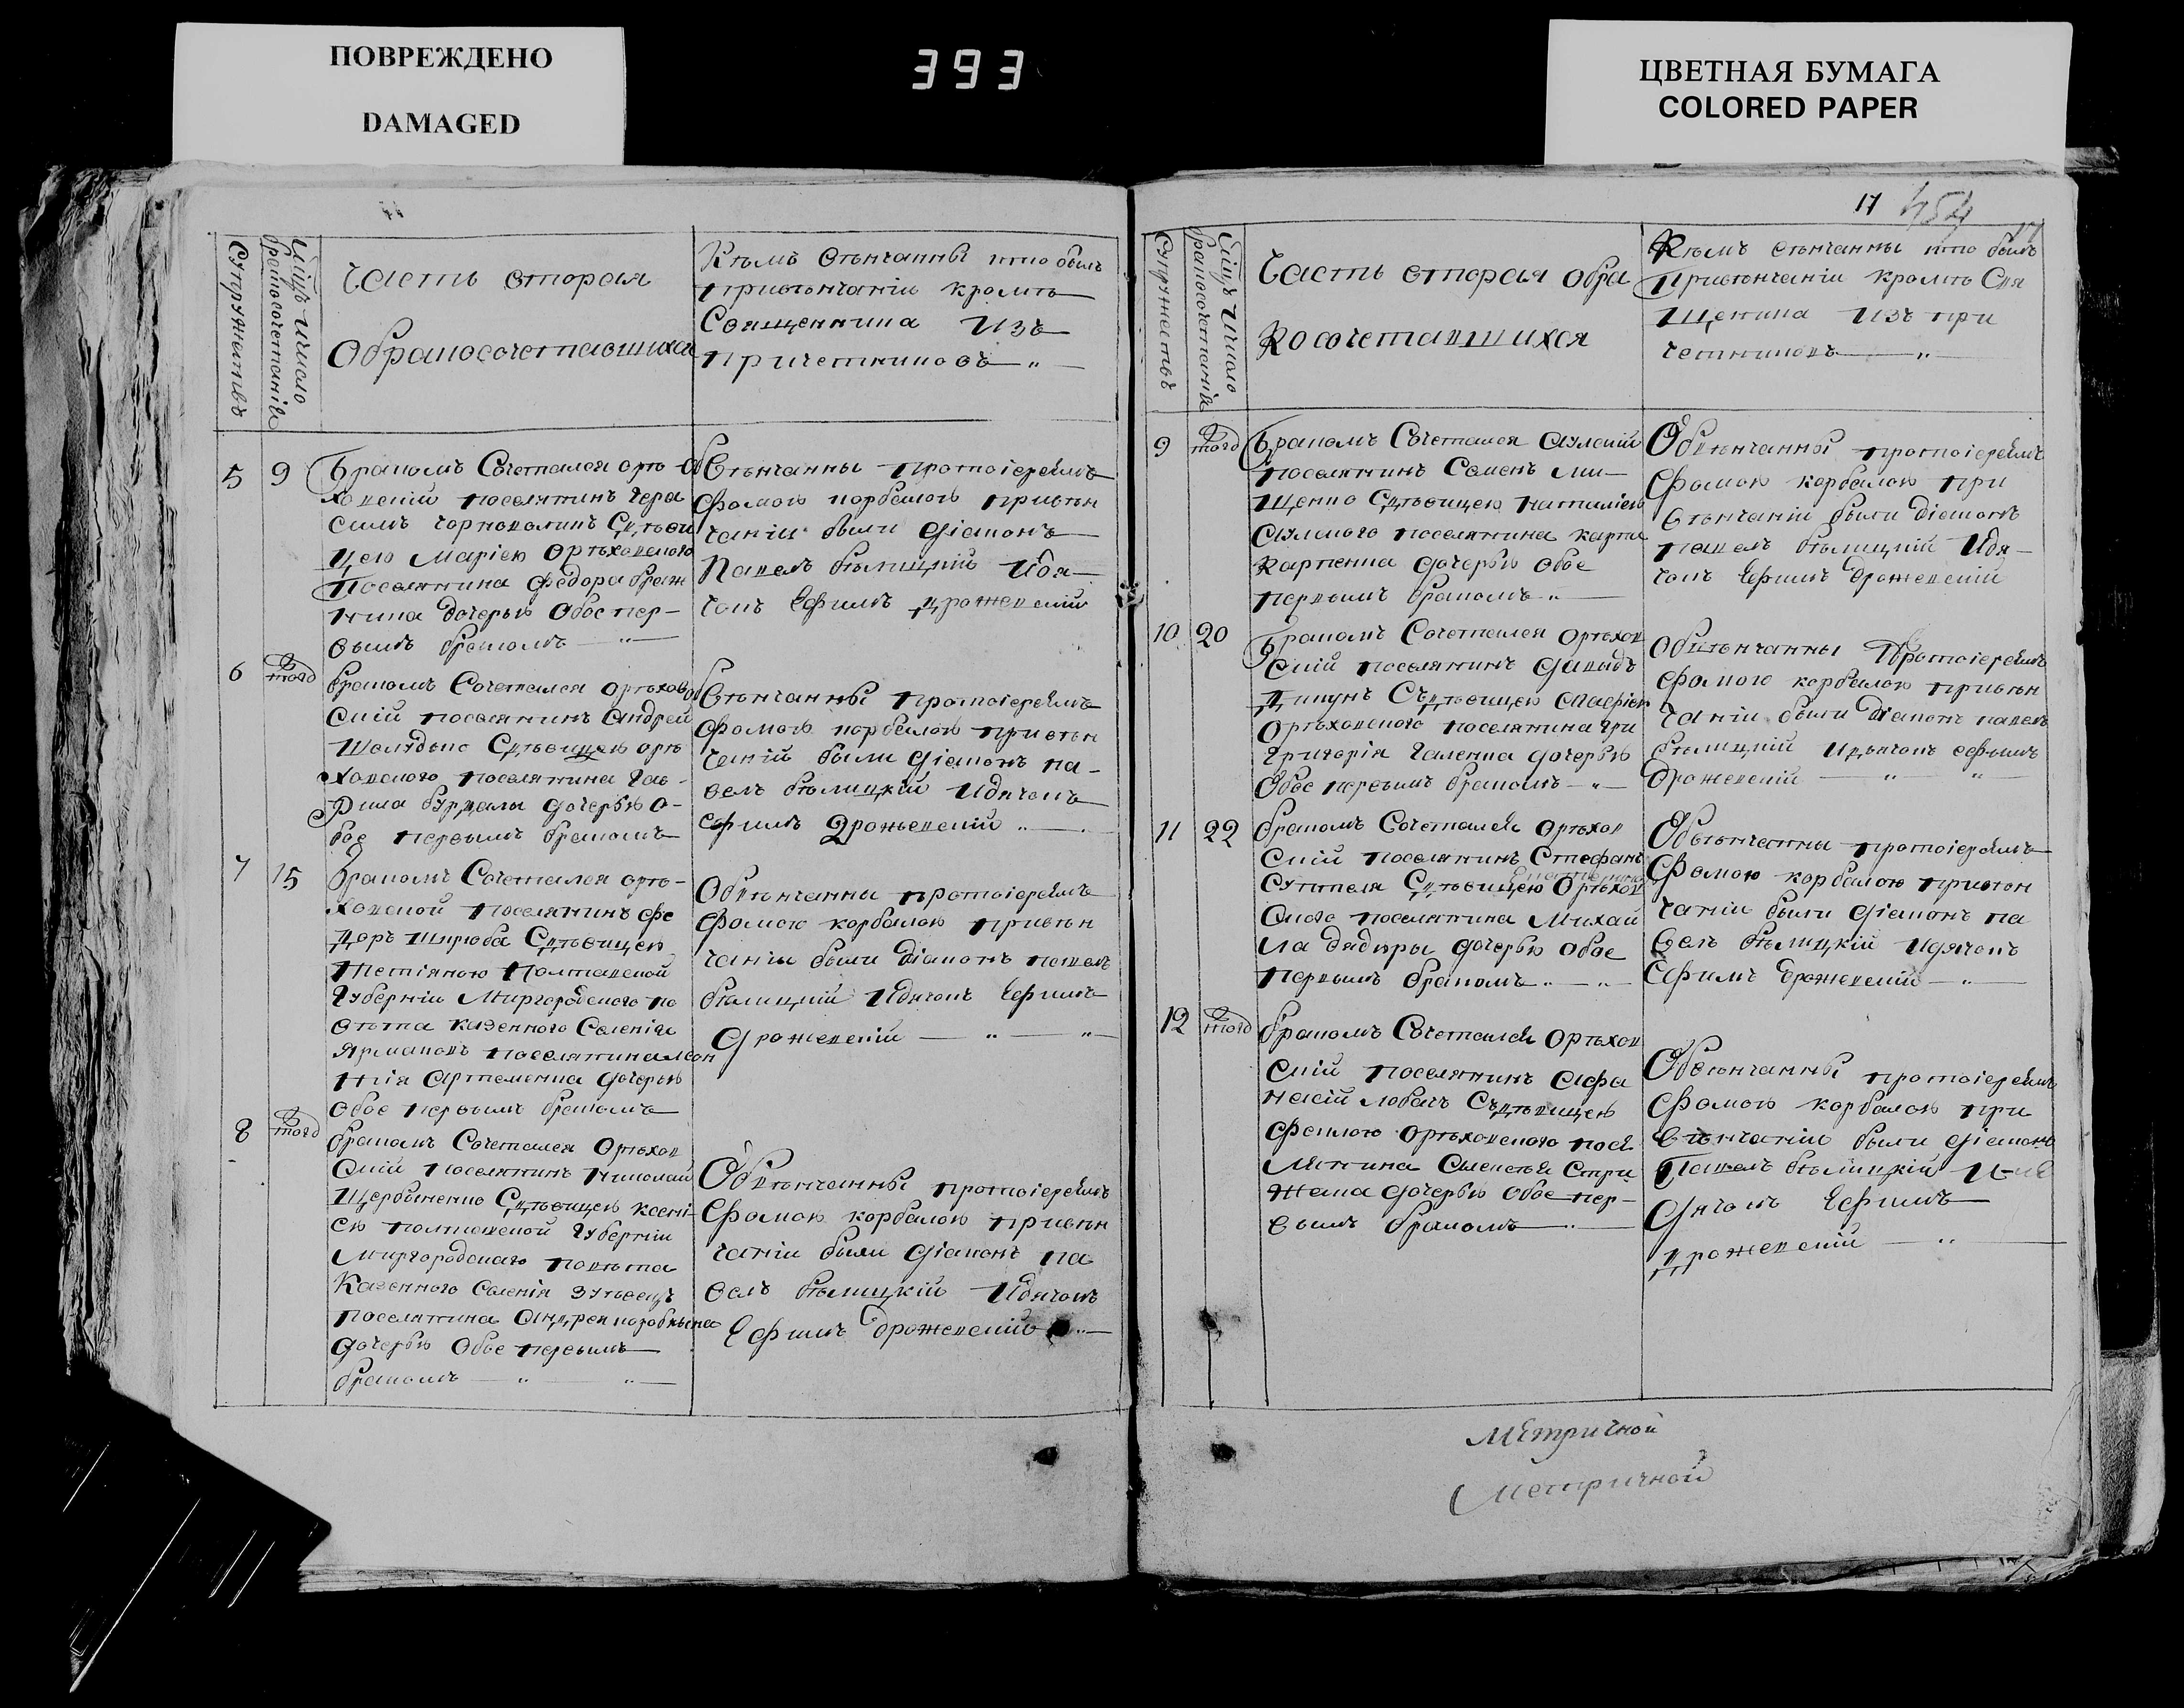 ПОВРЕЖДЕНО
DAMAGED
393
ЦВЕТНАЯ БУМАГА
COLORED PAPER
супружествъ
число
бракосочетанія
Часть вторая
О бракосочетавшихся
Кѣмъ вѣнчанны кто былъ
при вѣнчаніи кромѣ
Священника изъ
причетниковъ — „ —
5
9
Бракомъ Сочетался Орѣ-
ховскій поселянинъ Гера
симъ Чорноволикъ Съ дѣви
цею Маріею Орѣховского
Поселянина Федора
дочерью Обое пер-
вымъ бракомъ — „ —
Обвѣнчанны Протоіереймъ
Фомою Корбалою при вѣн
чаніи были Діаконъ
Павелъ Бѣлицкій и дя-
чокъ Ефимъ Дрожевскій
6
того
бракомъ Сочетался Орѣхов
скій поселянинъ Андрей
Съ дѣвицею Орѣ
ховского поселянина Гав-
рила дочерью О-
бое первымъ бракомъ
Обвѣнчанны Протоіереймъ
Фомою Корбалою при вѣн
чаній были Діаконъ Па-
велъ Бѣлицкій и дячокъ
Ефимъ Дрожевскій „ —
7
15
Бракомъ Сочетался Орѣ-
ховской Поселянинъ Фе
доръ Шкроба Съ дѣвицею
Тетіяною Полтавской
Губерніи Миргородского по
вѣта казенного Селенія
Ярмаковъ поселянина
Артеменка дочерью
Обое первымъ бракомъ
Обвѣнчанны протоіереймъ
Фомою Корбалою при вѣн
чаніи были Діаконъ Павелъ
Бѣлицкій и дячокъ Ефимъ
Дрожевскій — „ — „ —
8
того
бракомъ Сочетался Орѣхов
скій Поселянинъ Николай
Щербиненко Съ дѣвицею Ксені-
ею Полтавской Губерніи
Миргородскаго повѣта
Казенного Селенія Зуѣвецъ
поселянина Андрея
дочерью Обое первымъ
бракомъ — „ — „ —
Обвѣнчанны протоіереймъ
Фомою Корбалою при вѣн
чаніи были Діаконъ Па
велъ Бѣлицкій и дячокъ
Ефимъ Дрожевскій „ —
17
454
супружествъ
число
бракосочетаній
Часть вторая О бра
косочетавшихся
Кѣмъ вѣнчанны кто былъ
при вѣнчаніи кромѣ Свя
щеника изъ при
четниковъ — „
9
того
Бракомъ Сочетался
поселянинъ Семенъ Ми-
щенко Съ дѣвицею Наталіею
поселянина Карпа
Карпенка дочерью Обое
первымъ бракомъ „ —
Обвѣнчанны протоіереймъ
Фомою Корбалою при
вѣнчаніи были Діаконъ
Павелъ Бѣлицкій и дя-
чокъ Ефимъ Дрожевскій
10
20
Бракомъ Сочетался Орѣхов
скій поселянинъ Давидъ
Съ дѣвицею
Орѣховского поселянина Гри
Григорія Галенка дочерью
Обое первымъ бракомъ — „ —
Обвѣнчанны Протоіереймъ
Фомою Корбалою при вѣн
чаніи были Діаконъ Павелъ
Бѣлицкій и дячокъ Ефимъ
Дрожевскій — „ — „ —
11
22
бракомъ Сочетался Орѣхов
скій поселянинъ Стефанъ
Съ дѣвицею Орѣхов
ского поселянина Михай
ла дочерью Обое
первымъ бракомъ „ — „ —
Обвѣнчанны протоіереймъ
Фомою Корбалою при вѣн
чаніи были Діаконъ Па
велъ Бѣлицкій и дячокъ
Ефимъ Дрожевскій — „ —
12
того
бракомъ Сочетался Орѣхов
скій поселянинъ Афа
насій Съ дѣвицею
Феклою Орѣховского посе
лянина Стри
жака дочерью Обое пер-
вымъ бракомъ — „ —
Обвѣнчанны протоіереймъ
Фомою Корбалою при
вѣнчаніи были Діаконъ
Павелъ Бѣлицкій и
дячокъ Ефимъ
Дрожевскій — „ —
Метричной
Метричной